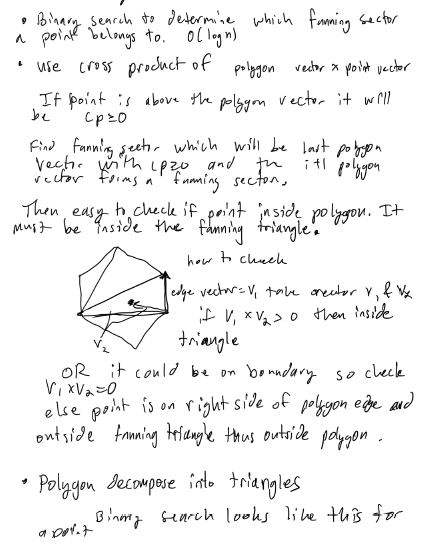 • Binary search to determine which fanning sector
a point belongs to. O(logn)
• use cross product of polygon vector x point vector
If point is above the polygon vector it will
be cp≥0
Find fanning sector which will be last polygon
vector with cp≥0 and the i+1 polygon
vector forms a fanning sector.
Then easy to check if point inside polygon. It
must be inside the fanning triangle.
how to check
edge vector = V1 take vector V1 & V2
if V1 x V2 > 0 then inside
triangle
V2
OR it could be on boundary so check
V1 x V2 = 0
else point is on right side of polygon edge and
outside fanning triangle thus outside polygon.
• Polygon decompose into triangles
Binary search looks like this for
a point